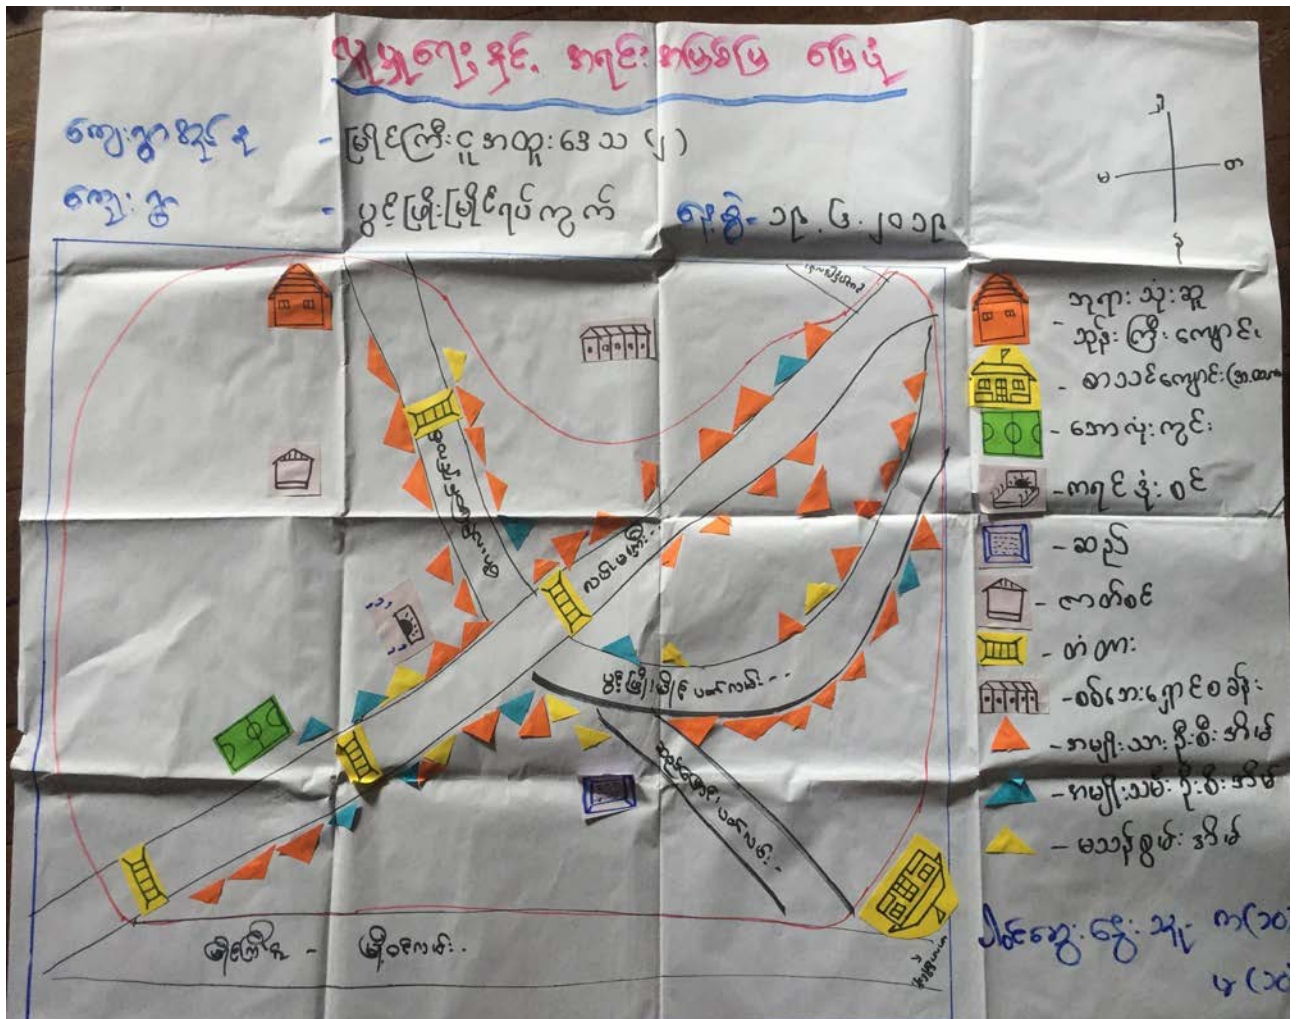 လူမှုရေးနှင့် အရင်းအမြစ်ပြ မြေပုံ
ကျေးရွာအုပ်စု - မြိုင်ကြီးငူအထူးဒေသ (၂)
ကျေးရွာ - ပွင့်ဖြိုးမြိုင်ရပ်ကွက်
နေ့စွဲ - ၁၉.၆.၂၀၁၉
မ
တ
ဘုရားသုံးဆူ
ဘုန်းကြီးကျောင်း
- စာသင်ကျောင်း
- ဘောလုံးကွင်း
- ကရင်ဒုံးစင်
- ဆည်
- ဇာတ်စင်
- တံတား
- စစ်ဘေးရှောင်စခန်း
- အမျိုးသားဦးစီးအိမ်
- အမျိုးသမီးဦးစီးအိမ်
- မသန်စွမ်းအိမ်
ပွင့်ဖြိုးမြိုင်ပတ်လမ်း
မြိုင်ကြီးငူ - မြို့ဝင်လမ်း
ပါဝင်ဆွေးနွေးသူ ကျ (၁၀)
မ (၁၀)